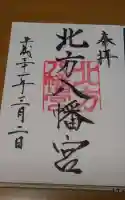 奉拝
北方八幡宮
平成二十一年三月二日